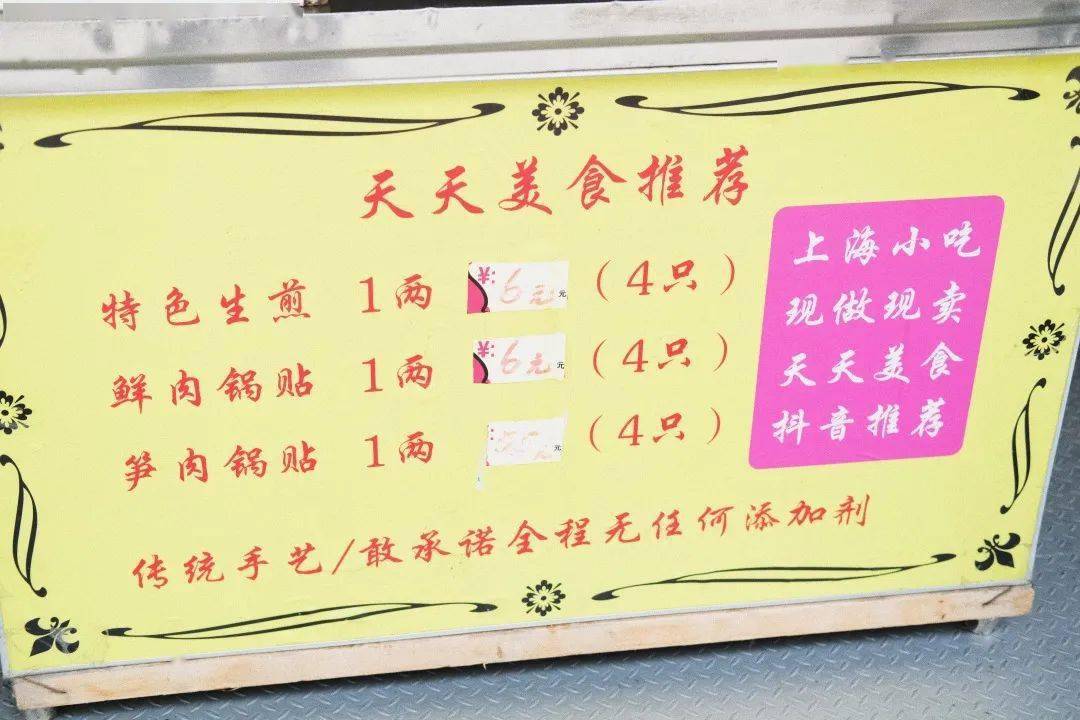 天天美食推荐
特色生煎 1两 ¥: 6元 元 (4只)
鲜肉锅贴 1两 ¥: 6元 元 (4只)
笋肉锅贴 1两 元 (4只)
传统手艺/敢承诺全程无任何添加剂
上海小吃
现做现卖
天天美食
抖音推荐